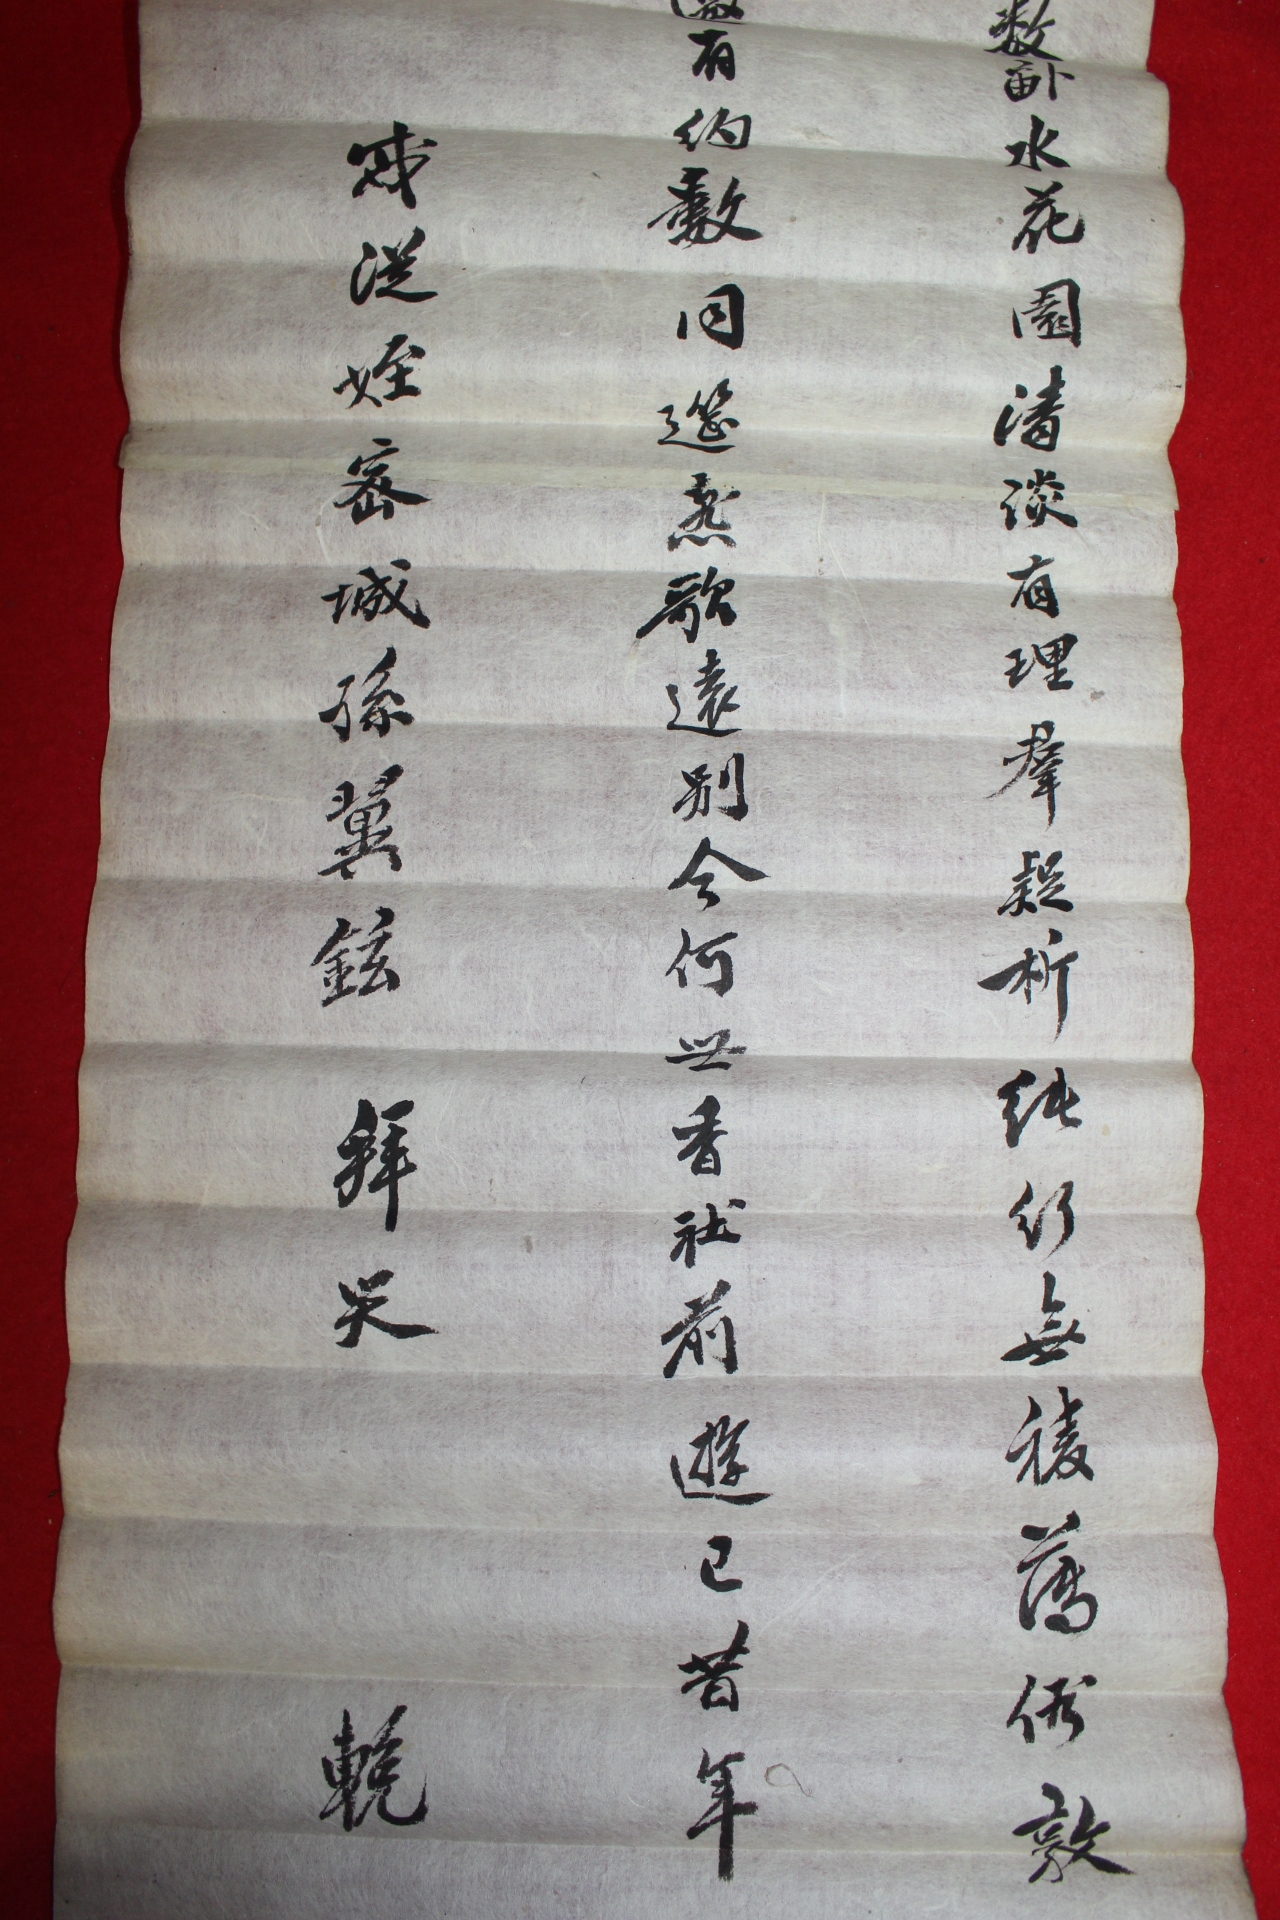 數畝水花園清談有理羣疑析純行無稜薄俗敦
有約數同筵烝歌遠別今何世香社前遊已昔年
戚從姪密城孫翼鉉 拜哭 輓